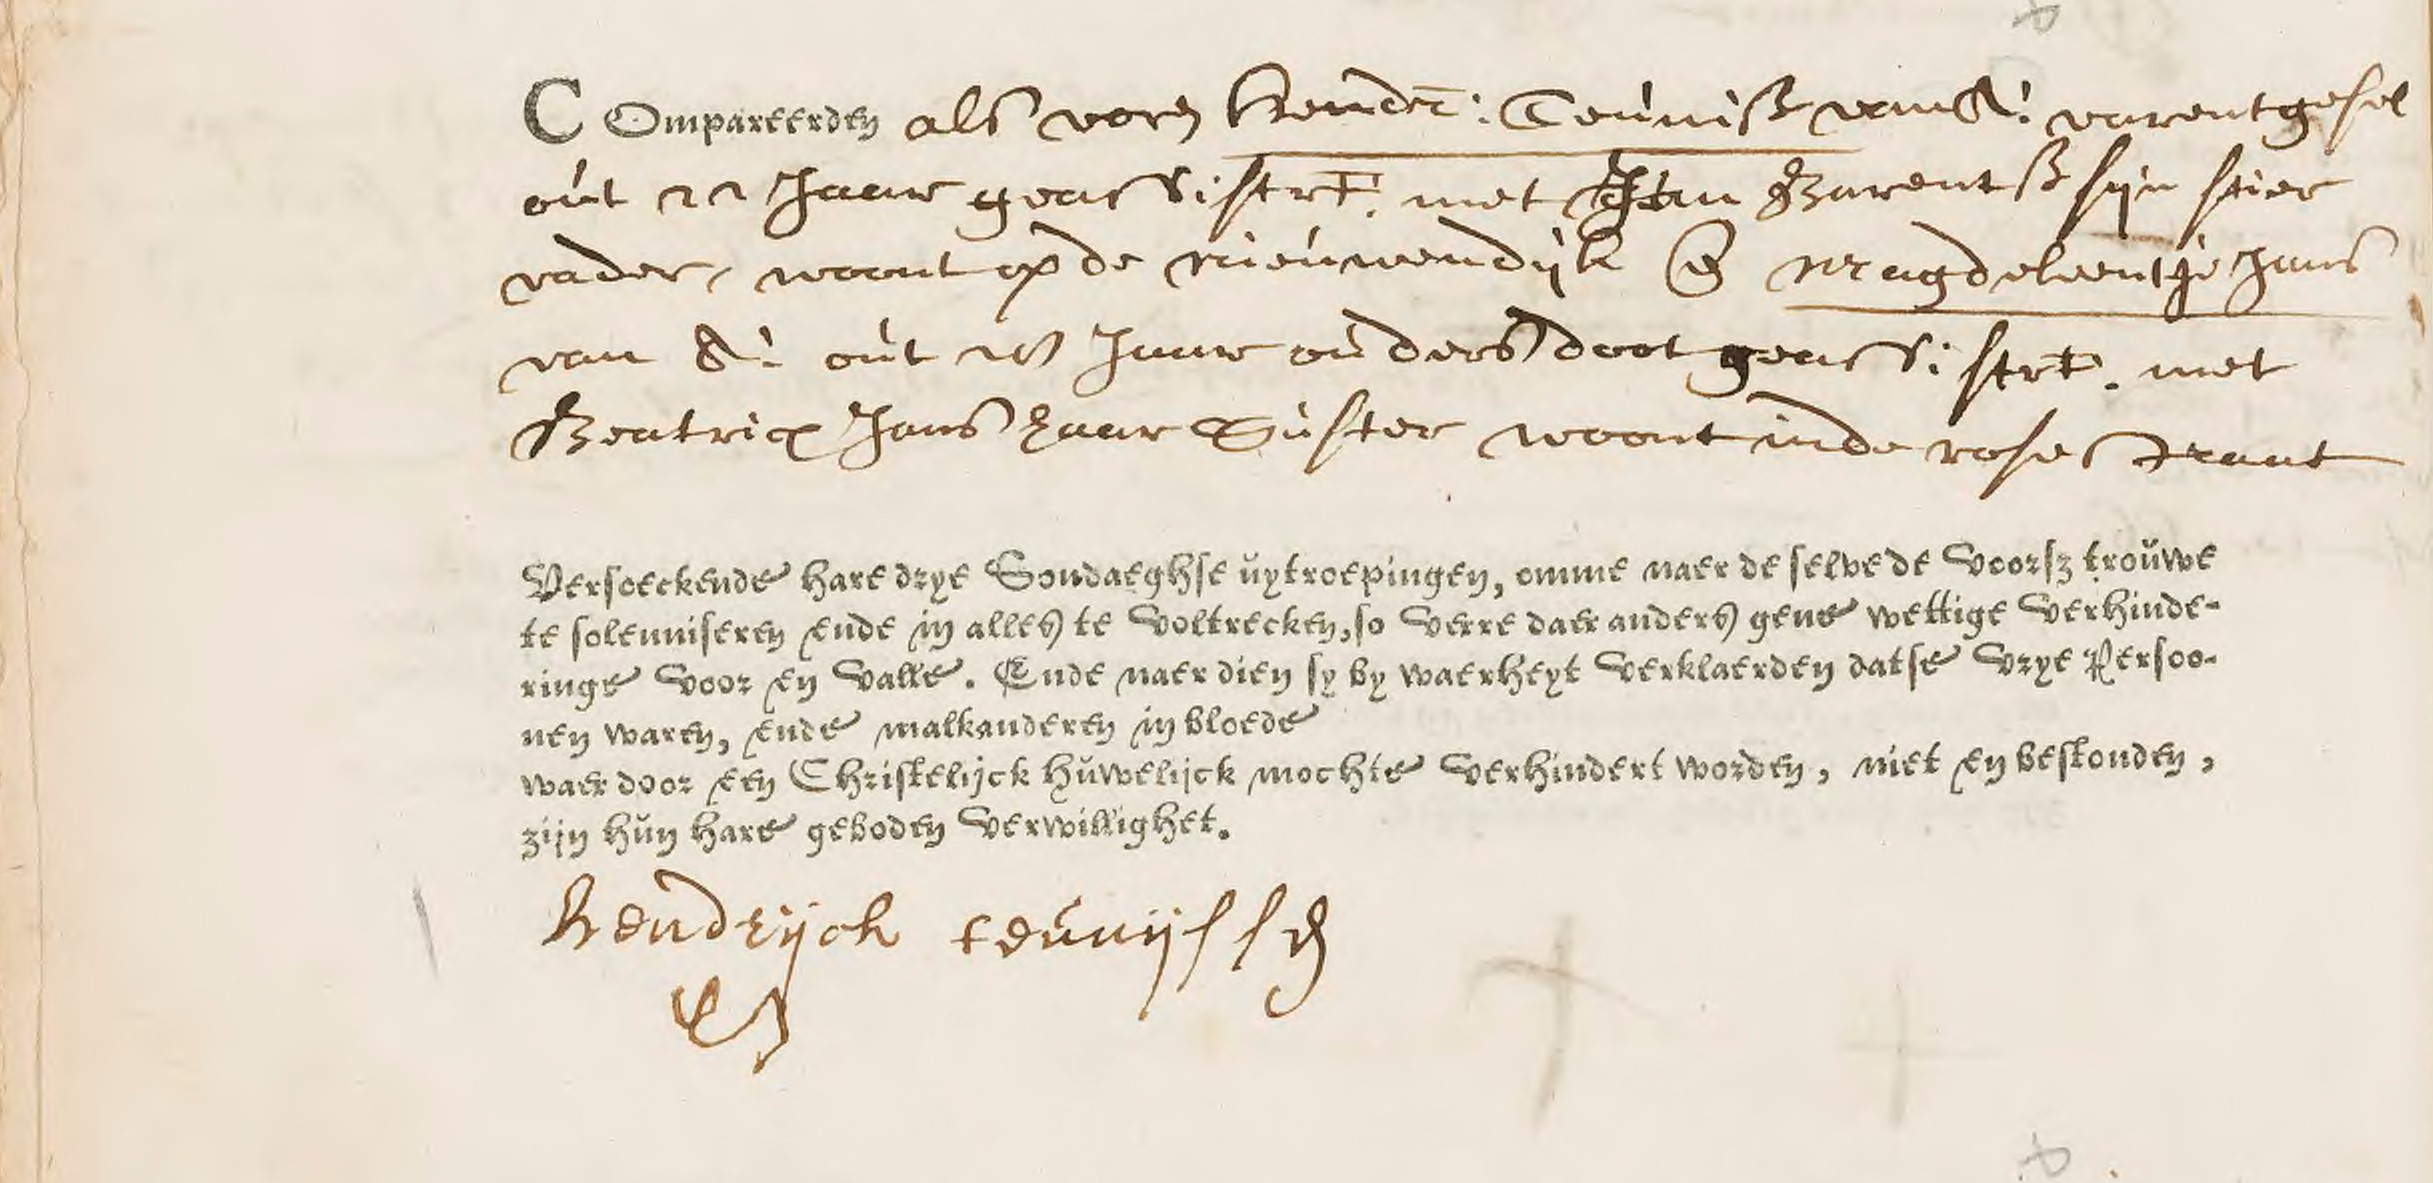 COmpareerden als voren Hendr: Teunisz van A: varentgesel
out 22 Jaar geassistrt. met Jan Barentsz sijn stier
vader, woont op de nieuwendijk & Magdeleentje Jans
van A: out 28 Jaar ouders doot geassistrt. met
Beatrix Jans haar Suster woont inde rosestraat
Versoeckende hare drye Sondaeghse uytroepingen, omme naer de selve de voorsz trouwe
te solenniseren ende in alles te voltrecken, so verre daer anders gene wettige verhinde-
ringe voor en valle. Ende naer dien sy by waerheyt verklaerden datse vrye Persoo-
nen waren, ende malkanderen in bloede
waer door een Christelijck huwelijck mochte verhindert worden, niet en bestonden,
zijn hun hare geboden verwillighet.
Hendrijck teunijssen